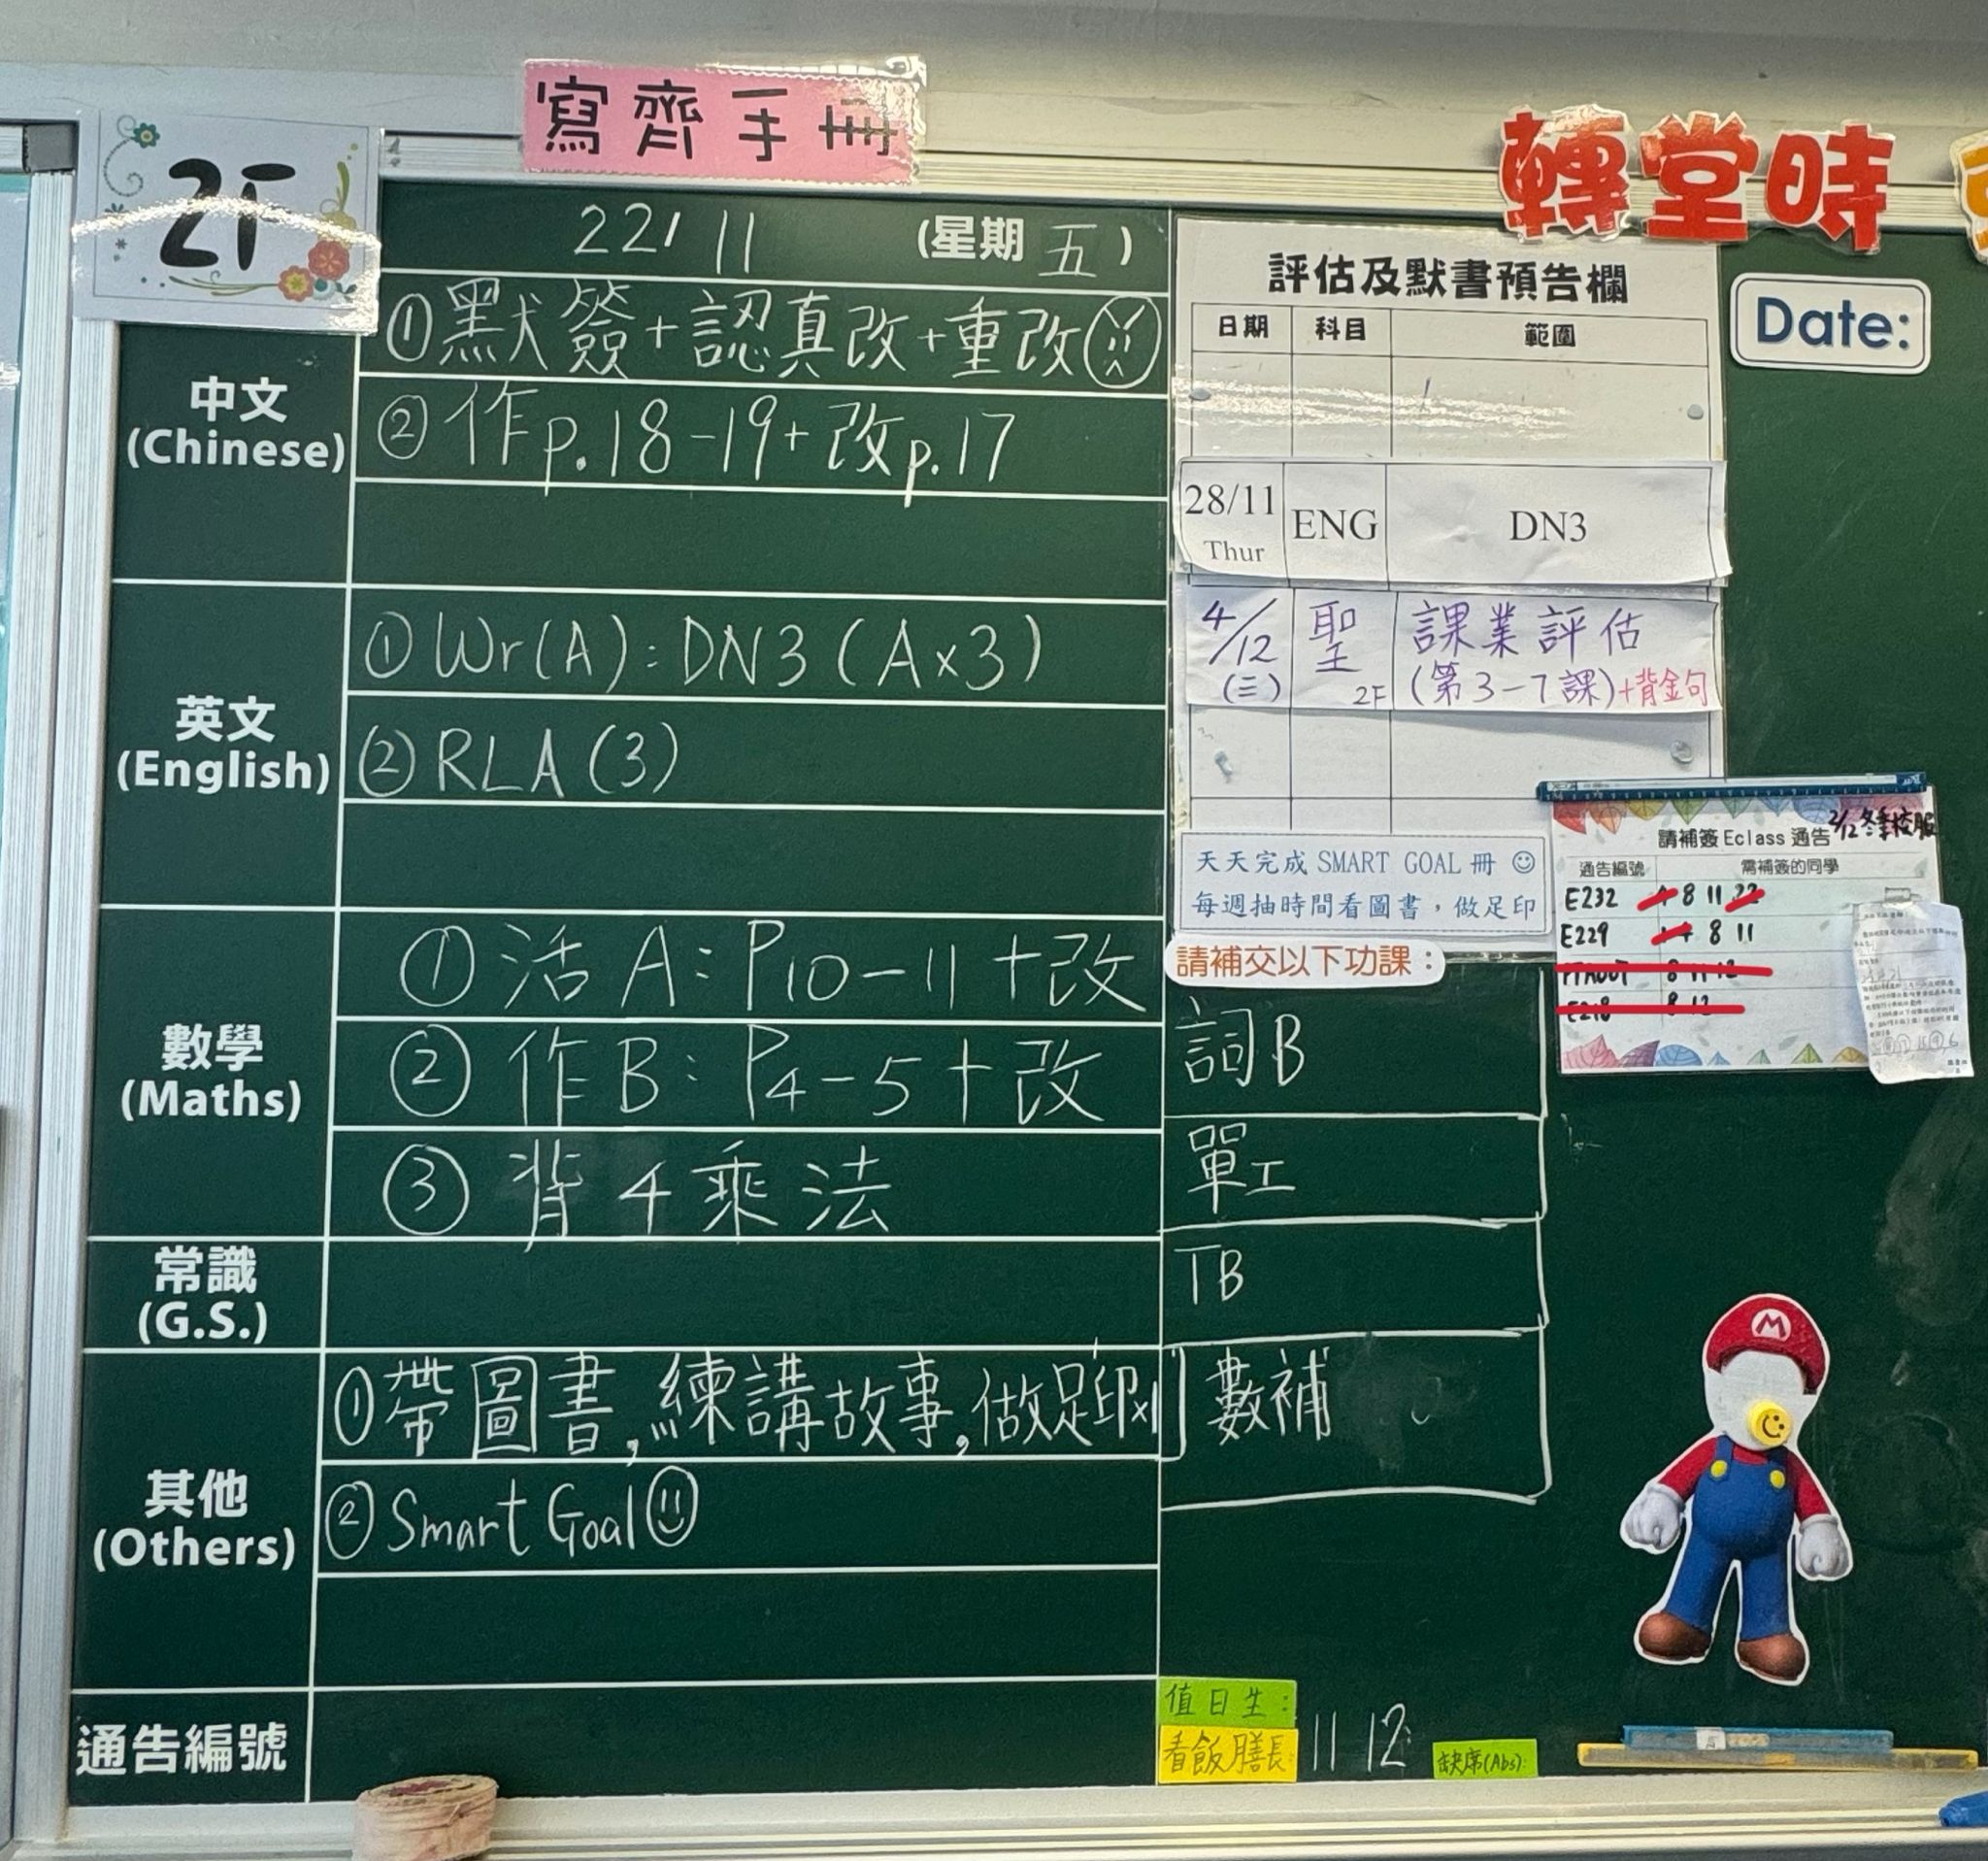 寫齊手冊
轉堂時
2F
22/11 (星期五)
中文
(Chinese)
①默簽+認真改+重改
②作p.18-19+改p.17
英文
(English)
①Wr(A):DN3(A×3)
②RLA(3)
數學
(Maths)
①活A:P10-11+改
②作B:P4-5+改
③背4乘法
常識
(G.S.)
其他
(Others)
①帶圖書,練講故事,做足印x1
②Smart Goal
通告編號
評估及默書預告欄
日期 科目 範圍
28/11 Thur ENG DN3
4/12 (三) 聖 2F 課業評估
(第3-7課)+背金句
天天完成 SMART GOAL 冊 ☺
每週抽時間看圖書,做足印
請補交以下功課:
詞B
單工
TB
數補
值日生:
看飯膳長: 11 12
缺席(Abs):
Date:
2/12冬季校服
請補簽 Eclass 通告
通告編號 需補簽的同學
E232 8 11 22
E229 8 11
8 11 12
E218 8 12
M